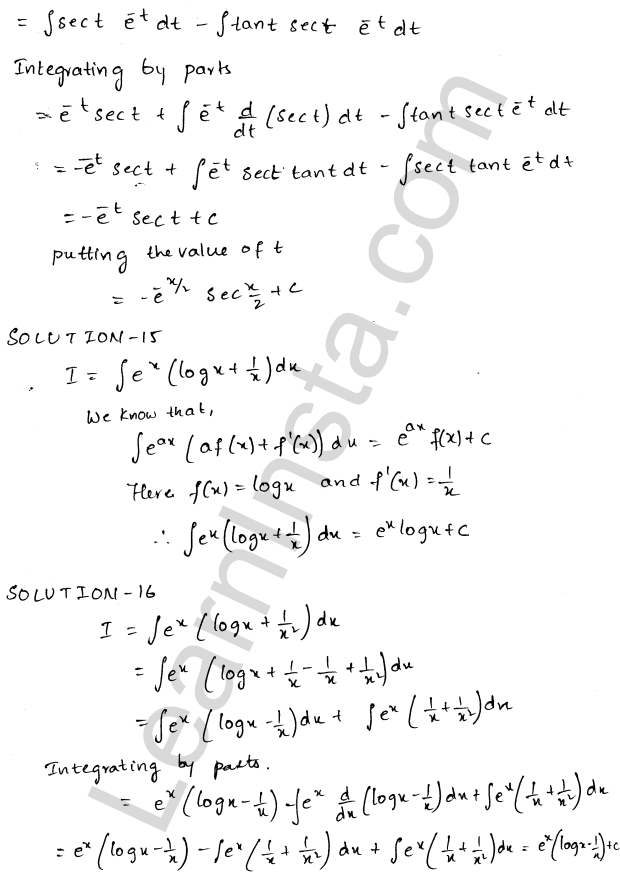 = ∫sect e^-t dt - ∫tant sect e^-t dt
Integrating by parts
= e^-t sect + ∫ e^-t d/dt (sect) dt - ∫tant sect e^-t dt
= -e^-t sect + ∫e^-t sect tant dt - ∫sect tant e^-t dt
= -e^-t sect + c
putting the value of t
= -e^-x/2 sec x/2 + c
SOLUTION-15
I = ∫e^x (logx + 1/x) dx
We know that,
∫e^ax (af(x) + f'(x)) dx = e^ax f(x) + c
Here f(x) = logx and f'(x) = 1/x
∴ ∫e^x (logx + 1/x) dx = e^x logx + c
SOLUTION-16
I = ∫e^x (logx + 1/x^2) dx
= ∫e^x (logx + 1/x - 1/x + 1/x^2) dx
= ∫e^x (logx - 1/x) dx + ∫e^x (1/x + 1/x^2) dx
Integrating by parts.
= e^x (logx - 1/x) - ∫e^x d/dx (logx - 1/x) dx + ∫e^x (1/x + 1/x^2) dx
= e^x (logx - 1/x) - ∫e^x (1/x + 1/x^2) dx + ∫e^x (1/x + 1/x^2) dx = e^x (logx - 1/x) + c
LearnInsta.com